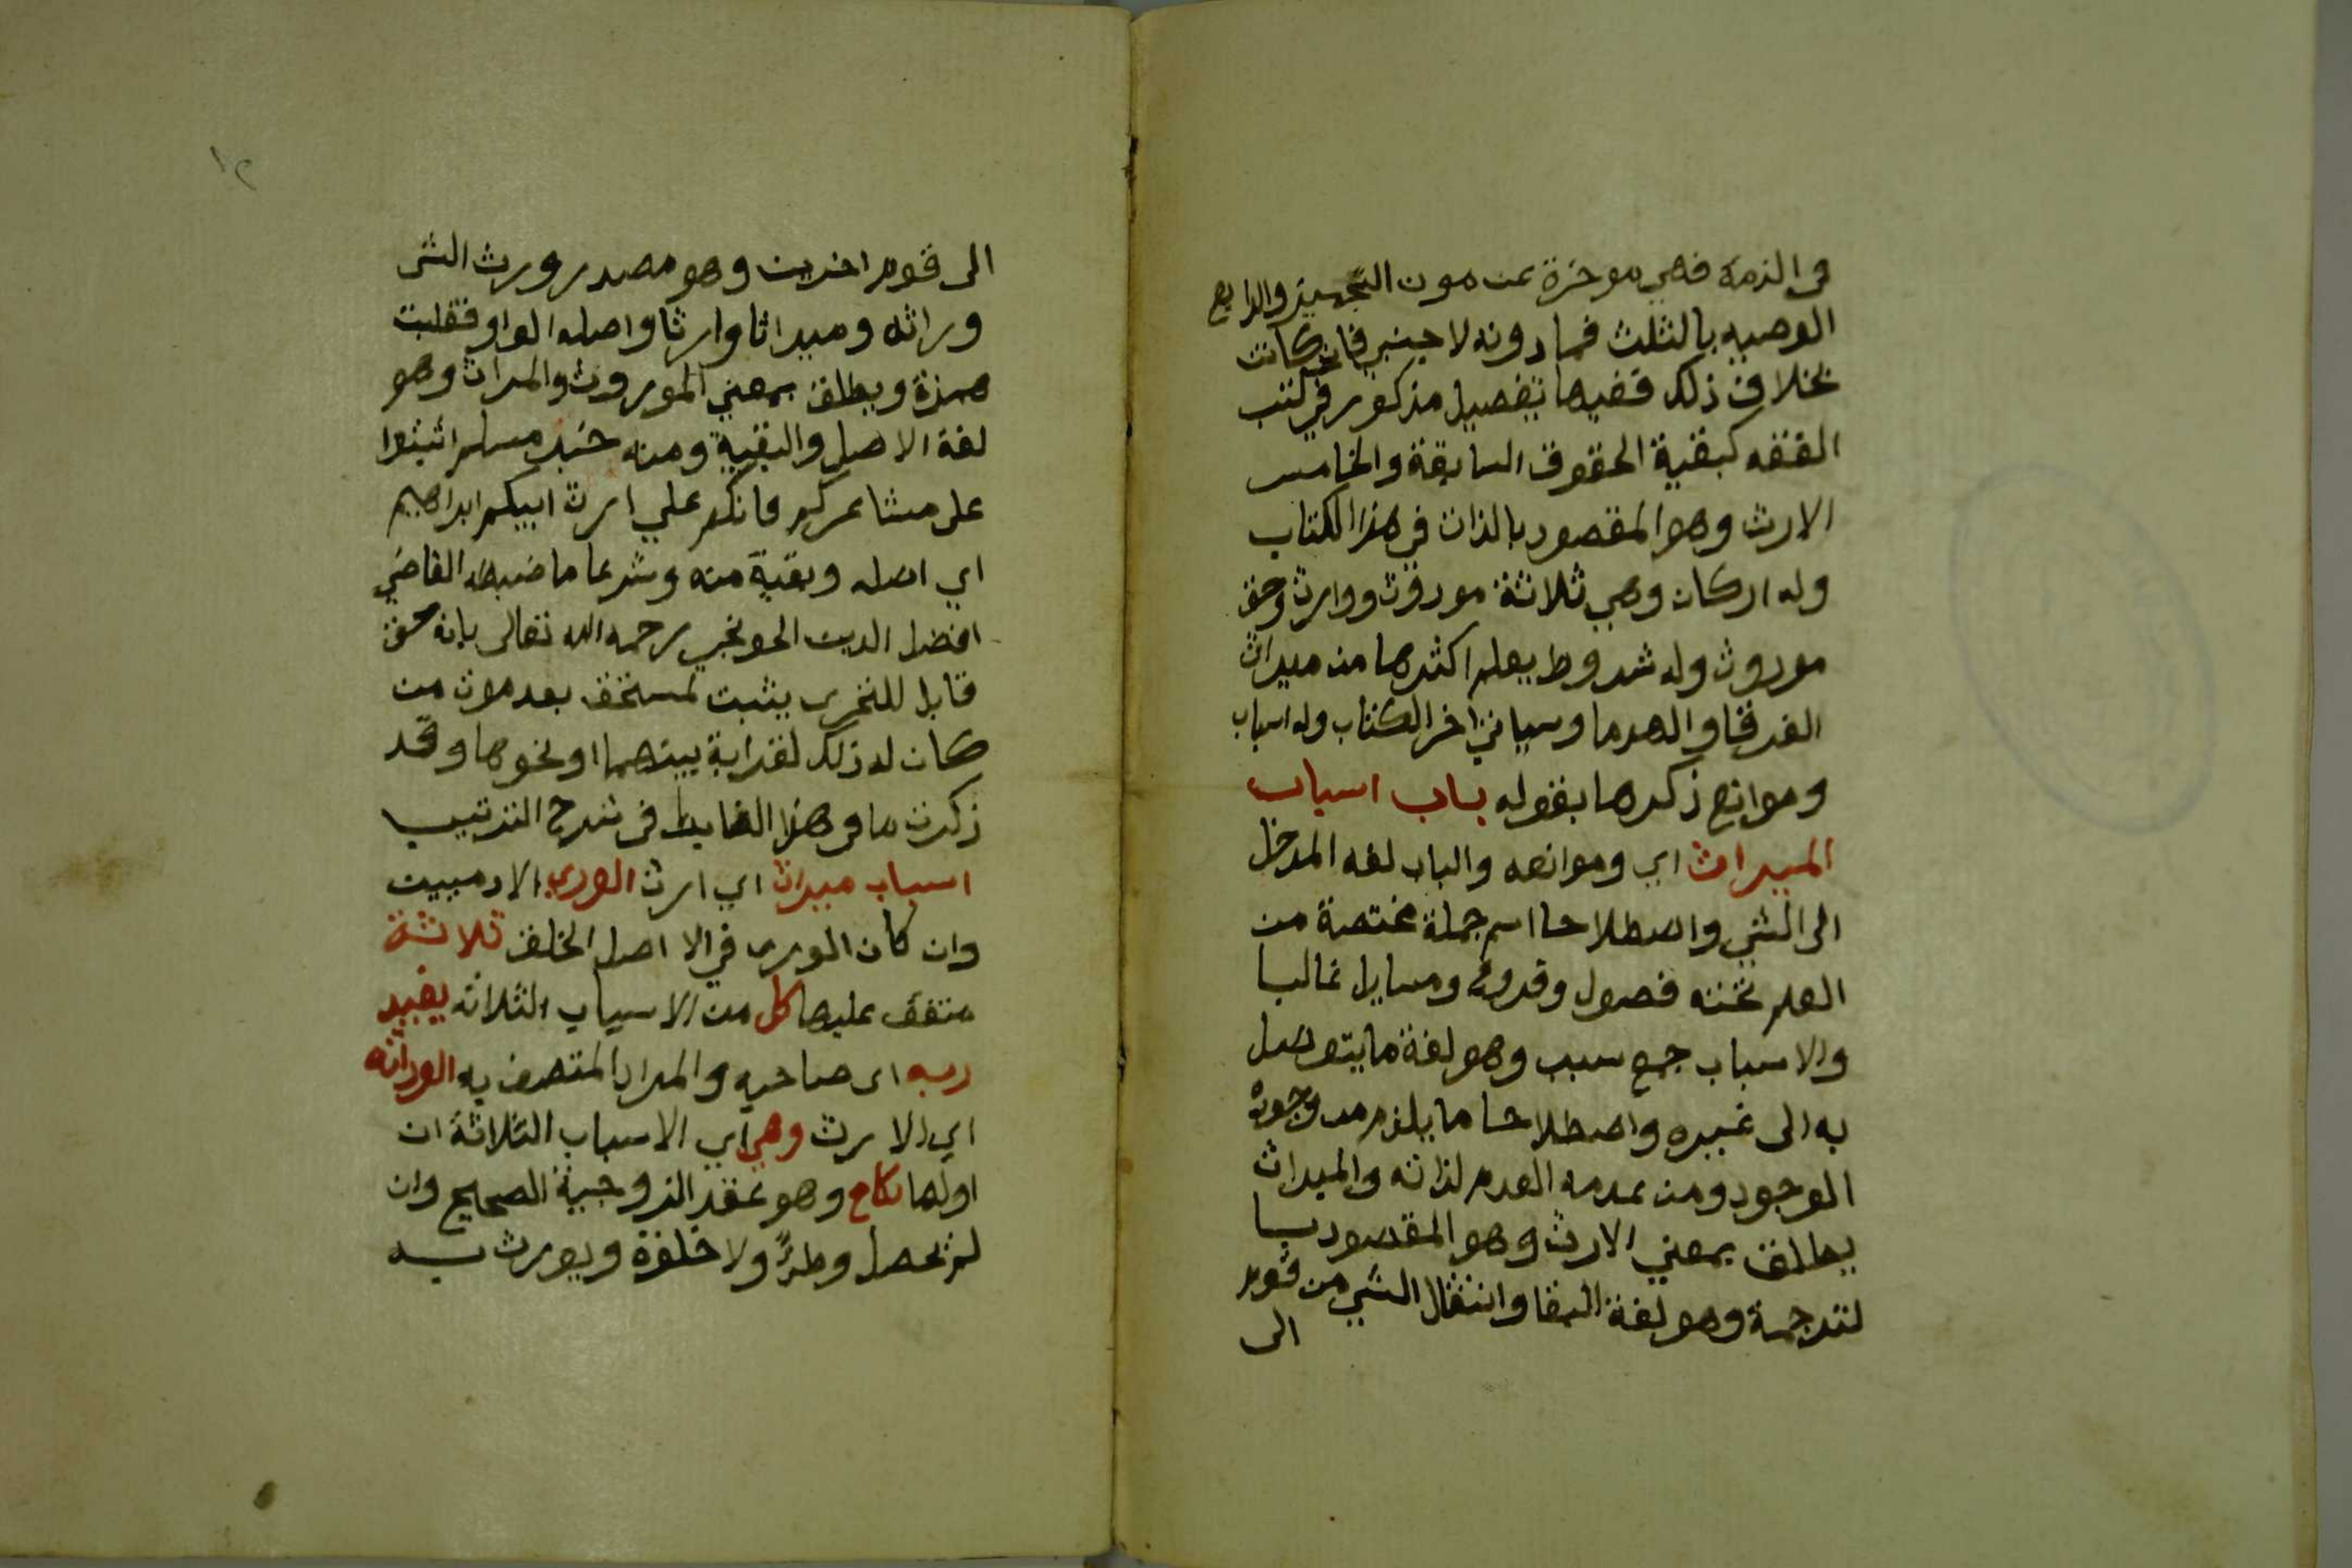 في الذمة فهي موخرة عن مون التجهيز والرابع
الوصيه بالثلث فما دونه لاجنبي فان كانت
بخلاف ذلك ففيها تفصيل مذكور في كتب
الفقه كبقية الحقوق السابقة والخامس
الارث وهو المقصود بالذات في هذا الكتاب
وله اركان وهي ثلاثة موروث ووارث وحق
موروث وله شروط يعلم اكثرها من ميراث
الغرقا والهدما وسياتي اخر الكتاب وله اسباب
وموانع ذكرها بقوله باب اسباب
الميراث اي وموانعه والباب لغه المدخل
الى الشي واصطلاحا اسم جملة مختصة من
العلم تحته فصول وفروع ومسايل غالبا
والاسباب جمع سبب وهو لغة ما يتوصل
به الى غيره واصطلاحا ما يلزم من وجوده
الوجود ومن عدمه العدم لذاته والميراث
يطلق بمعني الارث وهو المقصود بـا
لترجمة وهو لغة البقا وانتقال الشي من قوم
الى
١٢
الى قوم اخرين وهو مصدر ورث الشى
وراثه وميراثا وارثا واصله الواو فقلبت
همزة ويطلق بمعني الموروث والمراث وهو
لغة الاصل والبقية ومنه خبر مسلم اثبتوا
على مشاعركم فانكم علي ارث ابيكم ابراهيم
اي اصله وبقية منه وشرعا ما ضبطه القاضي
افضل الدين الخونجي رحمه الله تعالى بانه حق
قابل للتجزى يثبت لمستحق بعد موت من
كان له ذلك لقرابة بينهما او نحوها وقد
ذكرت ما في هذا الضابط في شرح الترتيب
اسباب ميراث اي ارث الورى الادميين
وان كان الورى في الا اصل الخلق ثلاثة
متفق عليها كل من الاسباب الثلاثه يفيد
ربه اى صاحبه والمراد المتصف به الوراثه
اي الارث وهي اي الاسباب الثلاثة ان
اولها نكاح وهو عقد الزوجية الصحيح وان
لم يحصل وطؤ ولا خلوة ويورث بــه